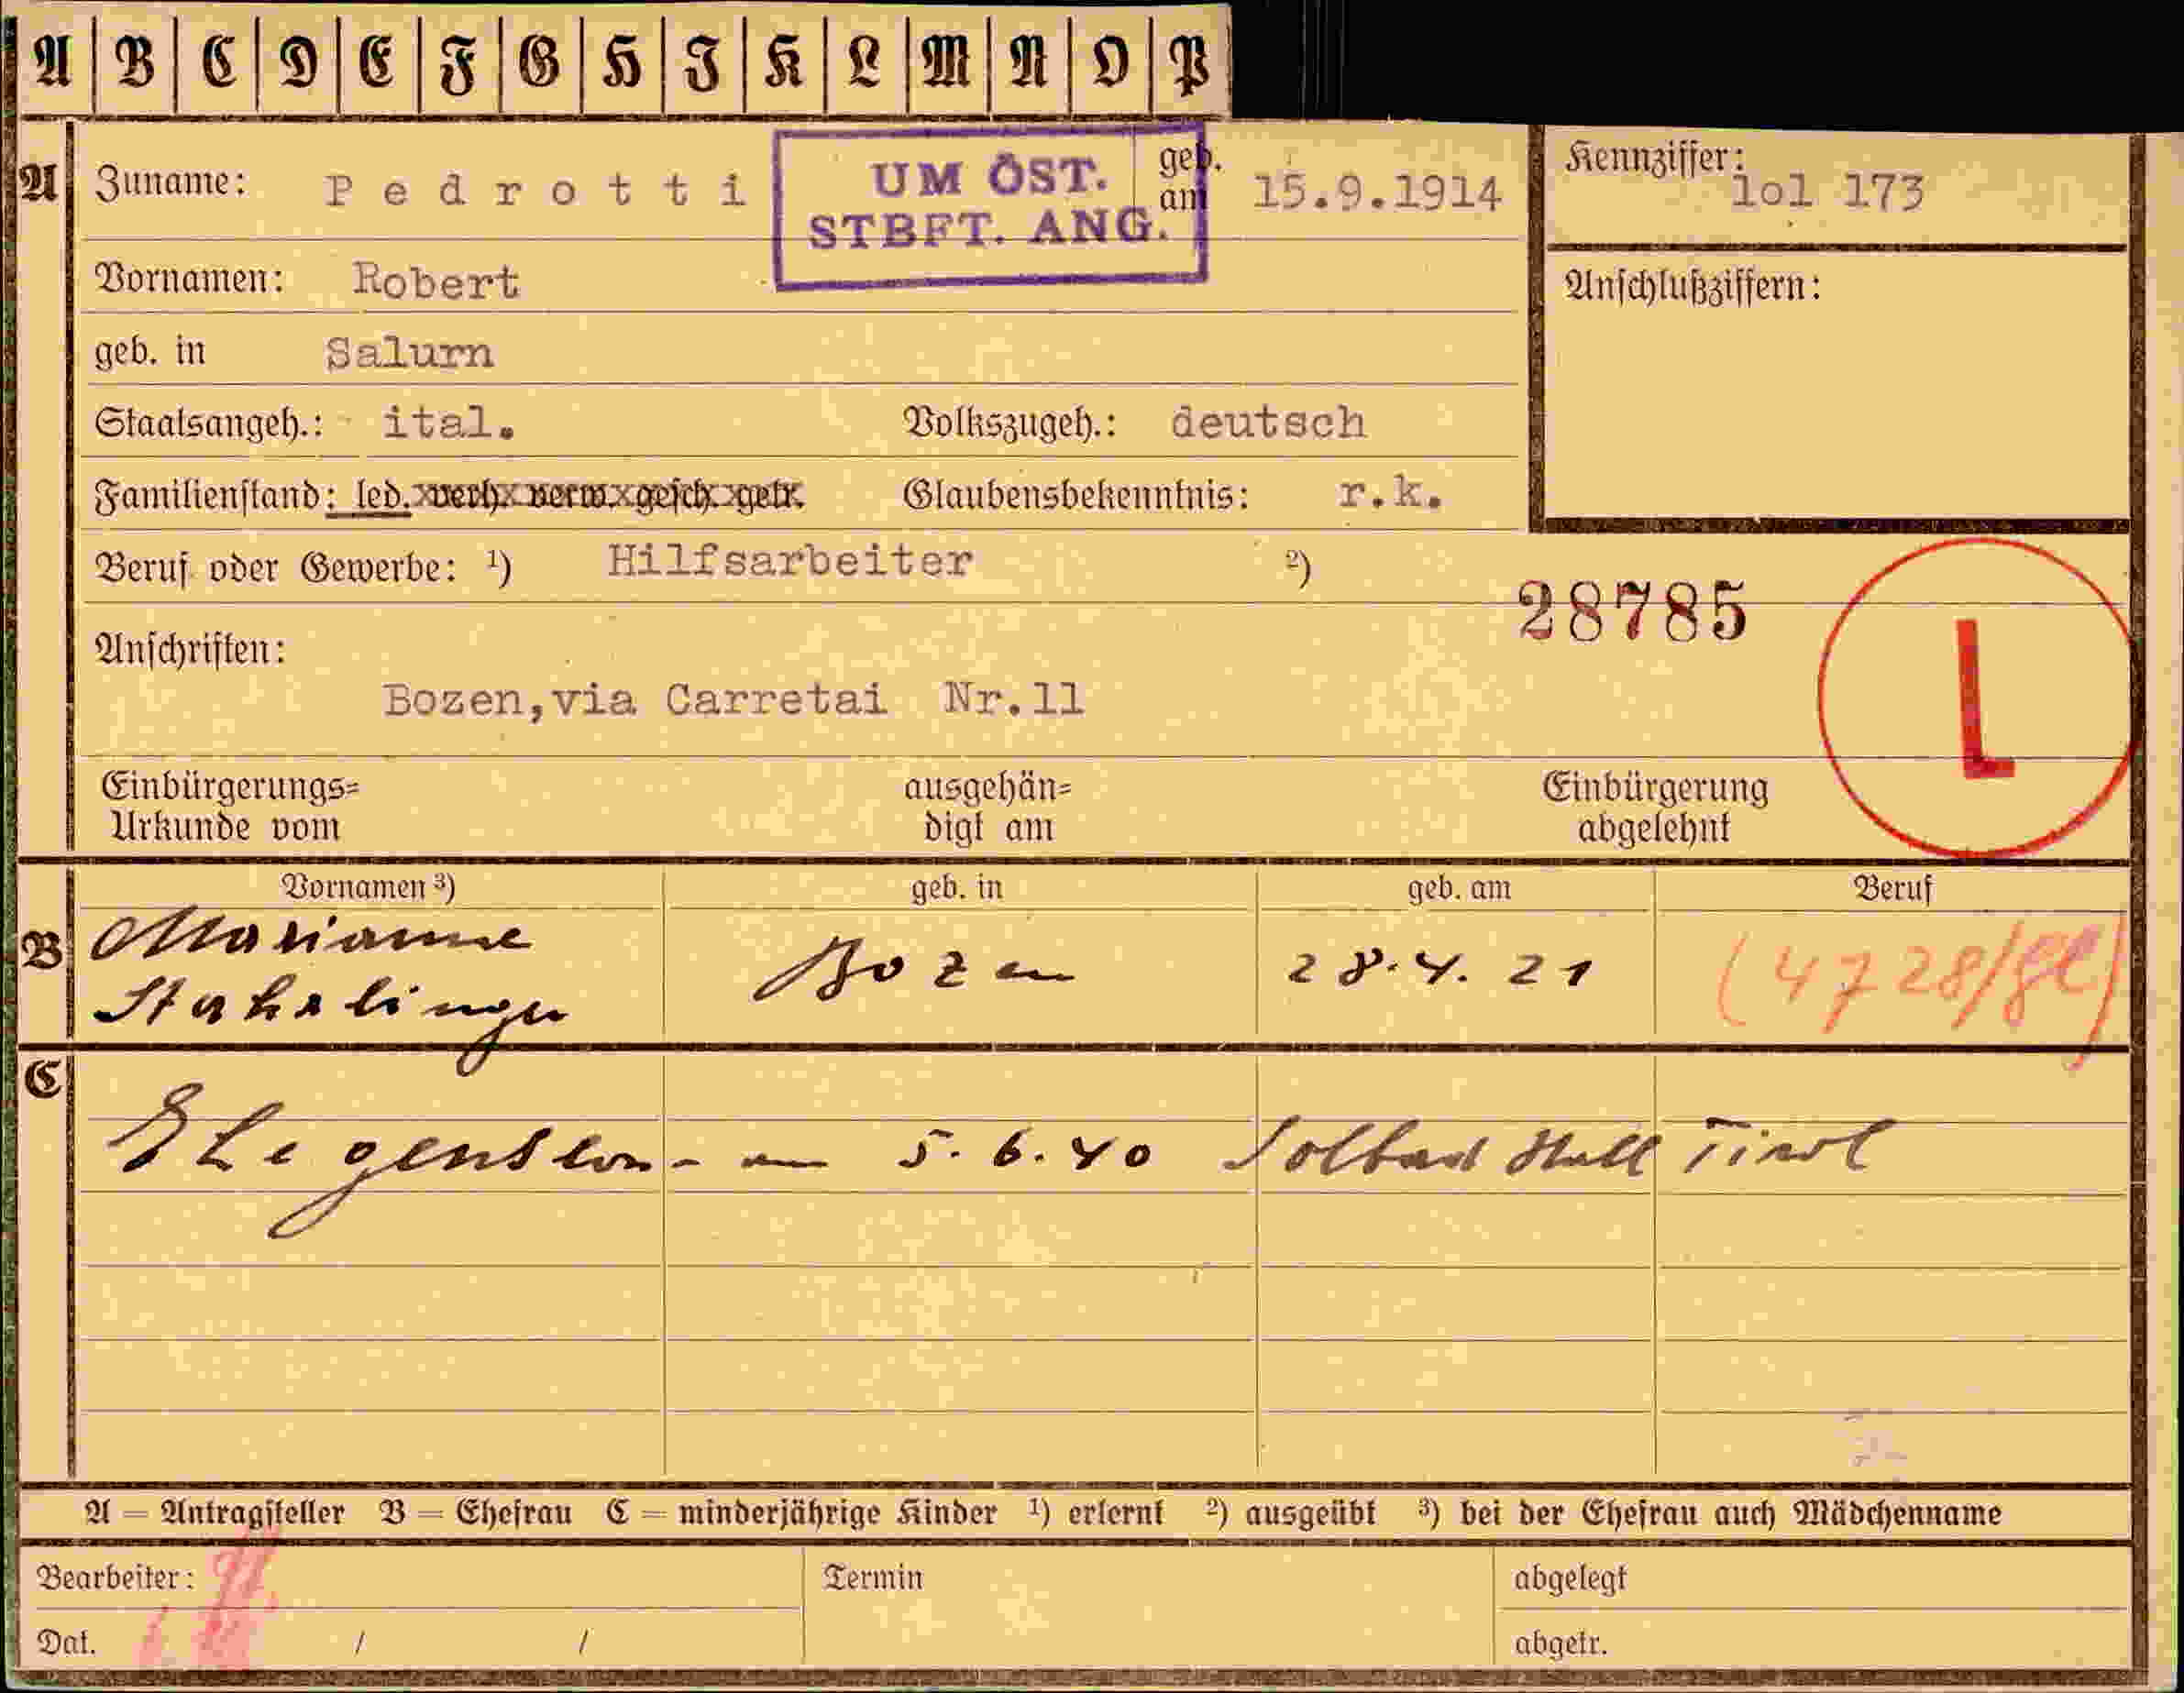 A B C D E F G H I K L M N O P
A Zuname: Pedrotti geb. am 15.9.1914
UM ÖST.
STBFT. ANG.
Kennziffer: lol 173
Vornamen: Robert
Anschlußziffern:
geb. in Salurn
Staatsangeh.: ital. Volkszugeh.: deutsch
Familienstand: led. verh. verw. gesch. getr. Glaubensbekenntnis: r.k.
Beruf oder Gewerbe: ¹) Hilfsarbeiter ²)
28785
L
Anschriften:
Bozen, via Carretai Nr.11
Einbürgerungs= ausgehän= Einbürgerung
Urkunde vom digt am abgelehnt
Vornamen ³) geb. in geb. am Beruf
B Marianne
Bozen 28.4.21 (4728/
C
5.6.40 Solbad Hall Tirol
A = Antragsteller B = Ehefrau C = minderjährige Kinder ¹) erlernt ²) ausgeübt ³) bei der Ehefrau auch Mädchenname
Bearbeiter: Termin abgelegt
Dat. / / abgetr.